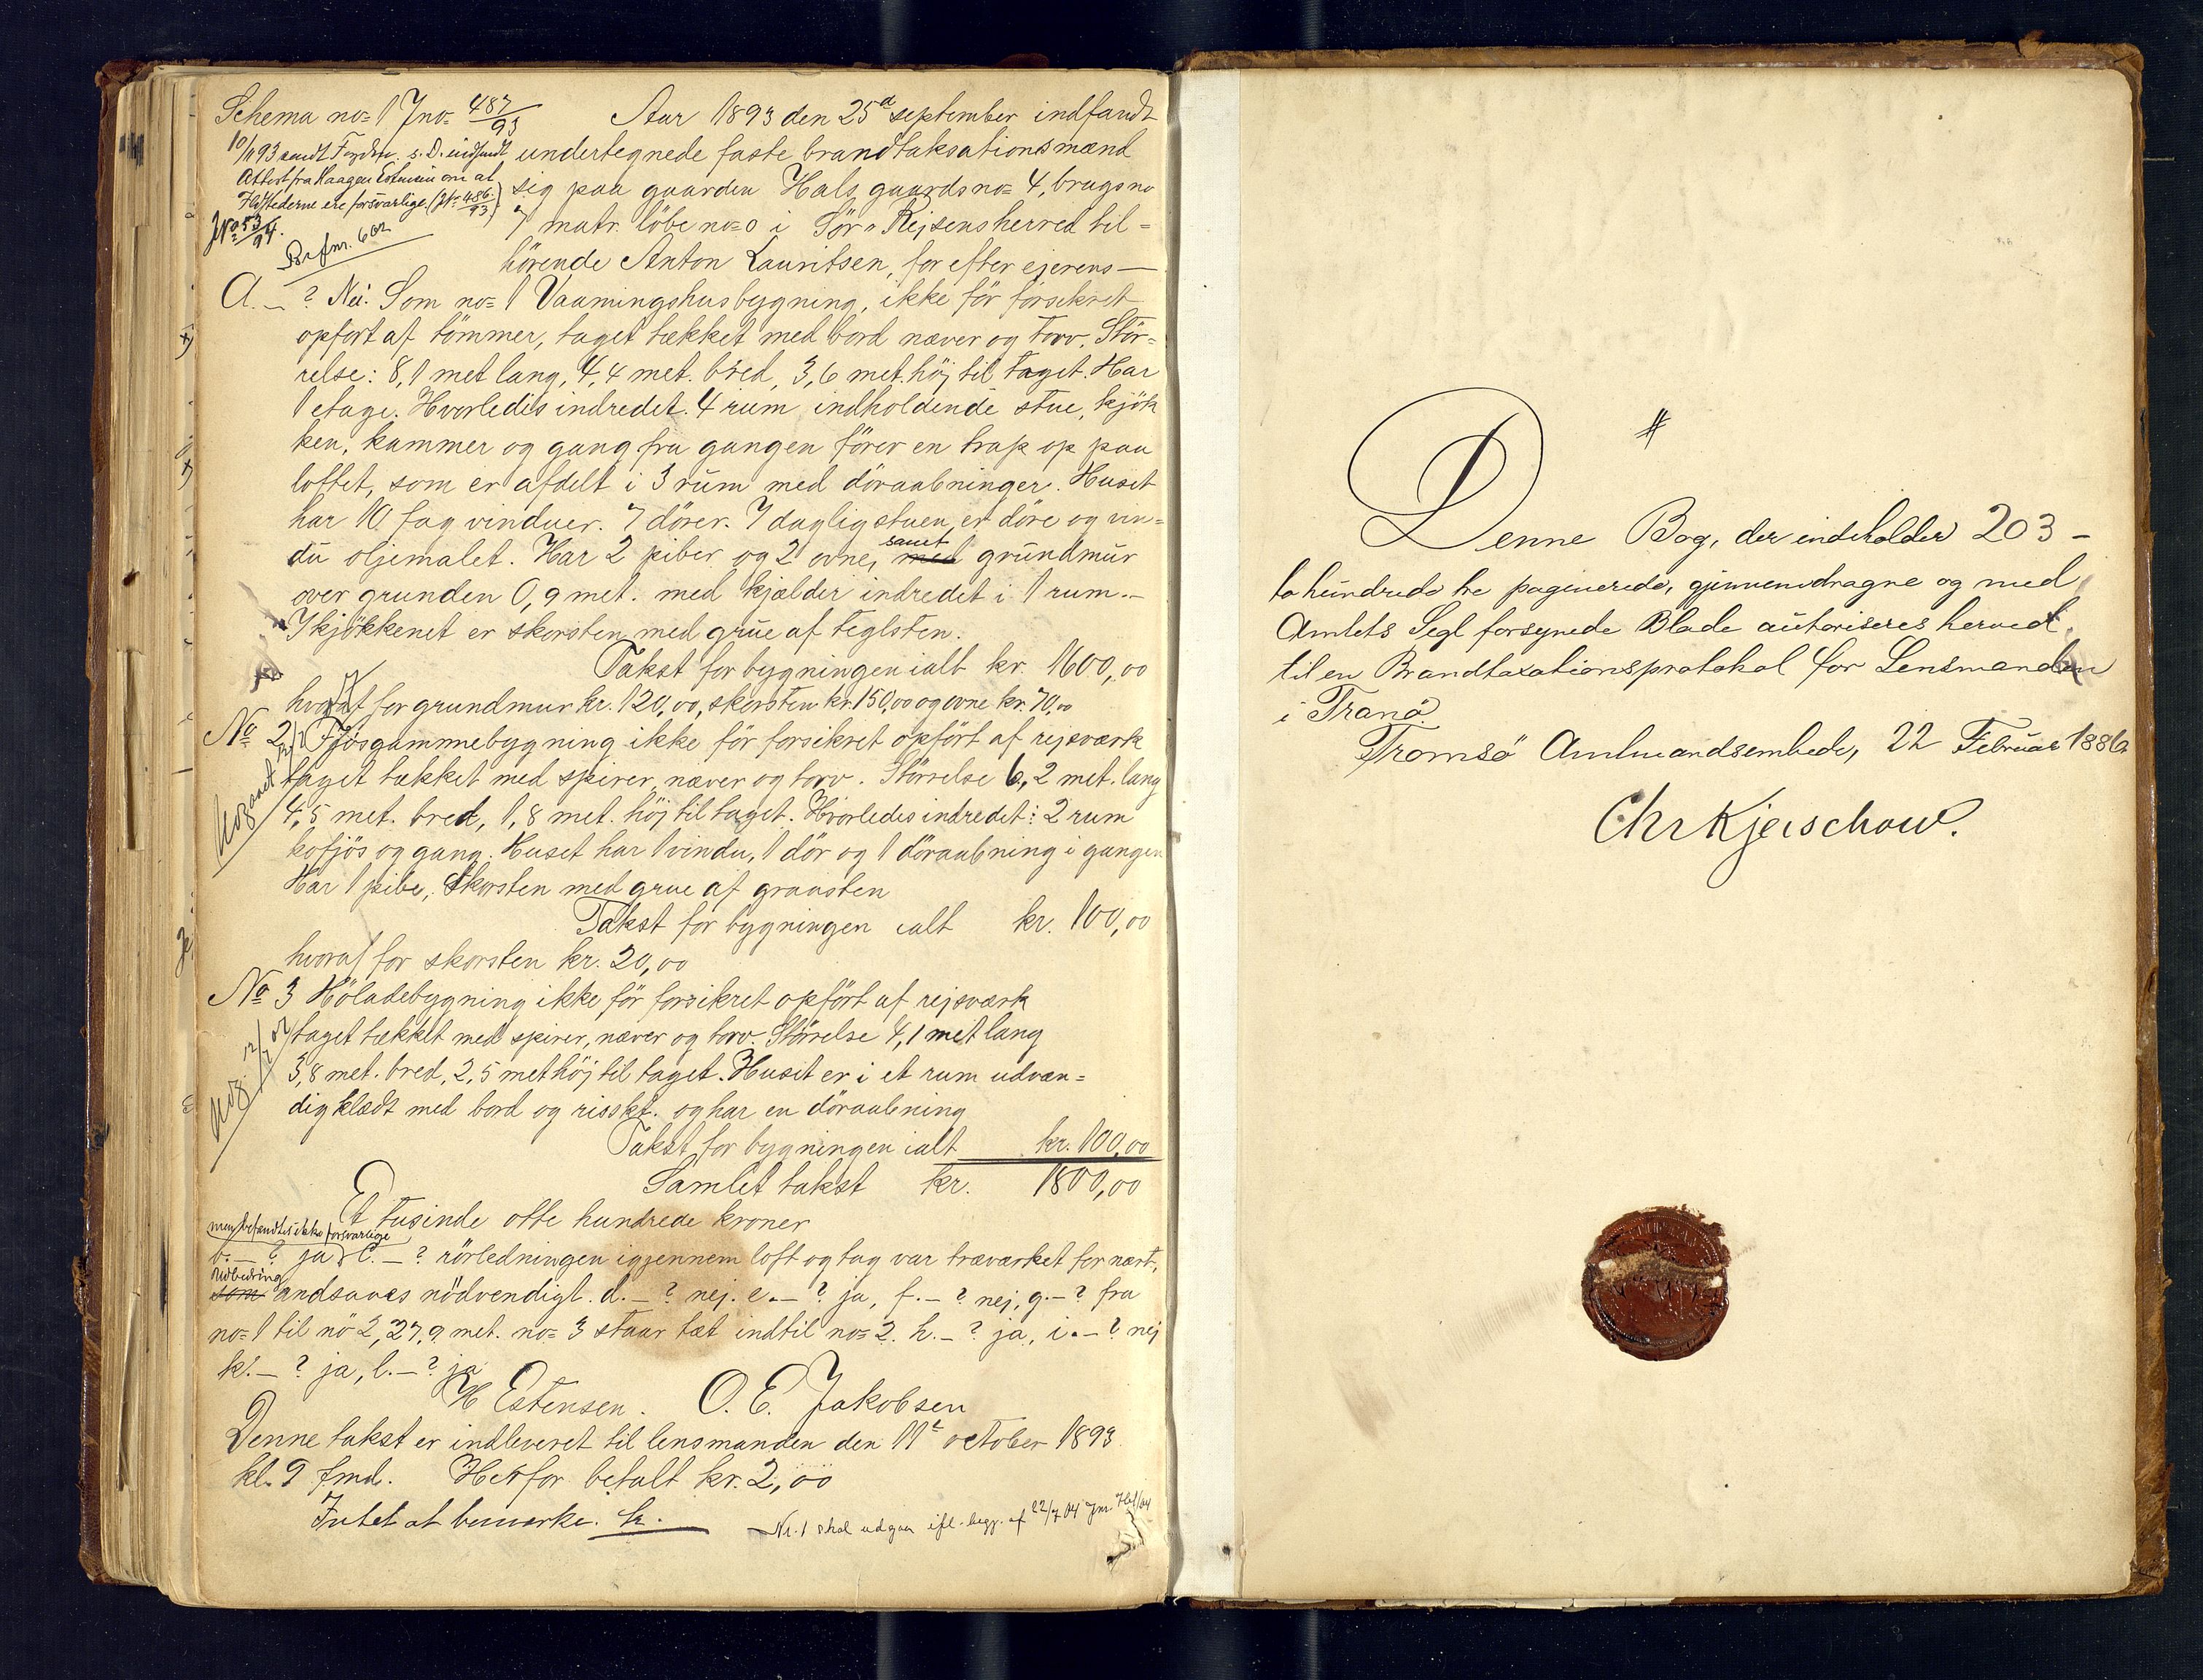 Schema no= 1 Jno= 487/93 Aar 1893 den 25d september indfandt
10/11 93 sendt Fogden s. D. indsendt undertegnede faste brandtaksationsmænd
Attest fra Haagen Estensen om at
Ildstederne ere forsvarlige (Jno 486/93)
sig paa gaarden Hals gaardsno= 4, brugsno
Jno 53/94.
7 matr. löbe no= 0 i Sör-Rejsens herred til=
Brfnr. 602
hörende Anton Lauritsen, for efter ejerens —
A. — ? Nei. Som no= 1 Vaaningshusbygning, ikke för forsikret
opfört af tömmer, taget tækket med bord næver og torv. Stör=
relse: 8,1 met lang, 4,4 met. bred, 3,6 met. höj til taget. Har
1 etage. Hvorledes indredet. 4 rum indholdende stue, kjök
ken, kammer og gang fra gangen förer en trap op paa
loftet, som er afdelt i 3 rum med döraabninger. Huset
har 10 fag vinduer. 7 dörer. I dagligstuen er döre og vin=
du oljemalet. Har 2 piber og 2 ovne, med samt grundmur
over grunden 0,9 met. med kjælder indredet i 1 rum. —
I kjökkenet er skorsten med grue af teglsten.
Takst for bygningen ialt kr. 1600,00
hvoraf for grundmur kr. 120,00, skorsten kr. 150,00 og ovne kr. 70,00
No 2 Fjösgammebygning ikke för forsikret opfört af rejsværk
taget tækket med spirer, næver og torv. Störrelse 6,2 met. lang
Udgaaet
4,5 met. bred, 1,8 met. höj til taget. Hvorledes indredet: 2 rum
kofjös og gang. Huset har 1 vindu, 1 dör og 1 döraabning i gangen
Har 1 pibe, Skorsten med grue af graasten
Takst for bygningen ialt kr. 100,00
hvoraf for skorsten kr. 20,00
No 3 Höladebygning ikke för forsikret opfört af rejsværk
taget tækket med spirer, næver og torv. Störrelse 4,1 met lang
Udg.
3,8 met. bred, 2,5 met höj til taget. Huset er i et rum udvæn=
dig klædt med bord og risskt. og har en döraabning
Takst for bygningen ialt kr. 100,00
Samlet takst kr. 1800,00
Et tusinde otte hundrede kroner
men befandtes ikke forsvarlige
b. — ? ja, C. — ? rörledningen igjennem loft og tag var træværket for nært,
udbedring
som andsaaes nödvendigt. d. — ? nej. e. — ? ja, f. — ? nej, g. — ? fra
no= 1 til no 2, 27,9 met. no= 3 staar tæt indtil no= 2. h. — ? ja, i. — ? nej
k. — ? ja, l. — ? ja
H Estensen. O. E. Jakobsen
Denne takst er indleveret til lensmanden den 11te october 1893
kl. 9 fmd. Herfor betalt kr. 2,00
Intet at bemærke.
Nr. 1 skal udgaa ifl. begj. af 22/7 04
#
Denne Bog, der indeholder 203 -
to hundrede tre paginerede, gjennemdragne og med
Amtets Segl forsynede Blade autoriseres herved
til en Brandtaxationsprotokol for Lensmanden
i Tranö.
Tromsö Amtmandsembede, 22 Februar 1886
Chr Kjerschow.